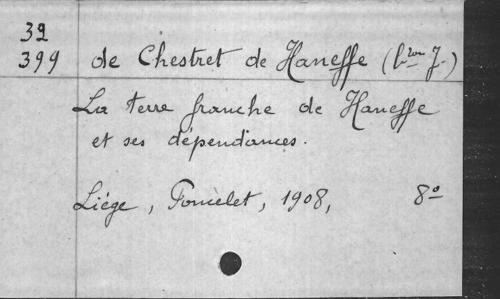 32
399 de Chestret de Haneffe (bron J.)
La terre franche de Haneffe
et ses dépendances.
Liége, Poncelet, 1908, 8o